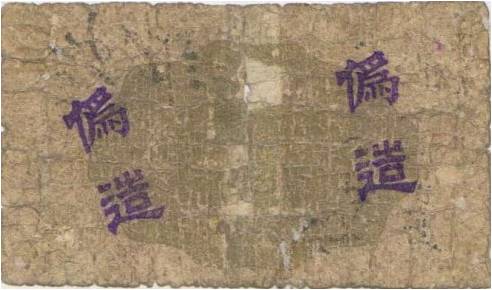 偽造
偽造